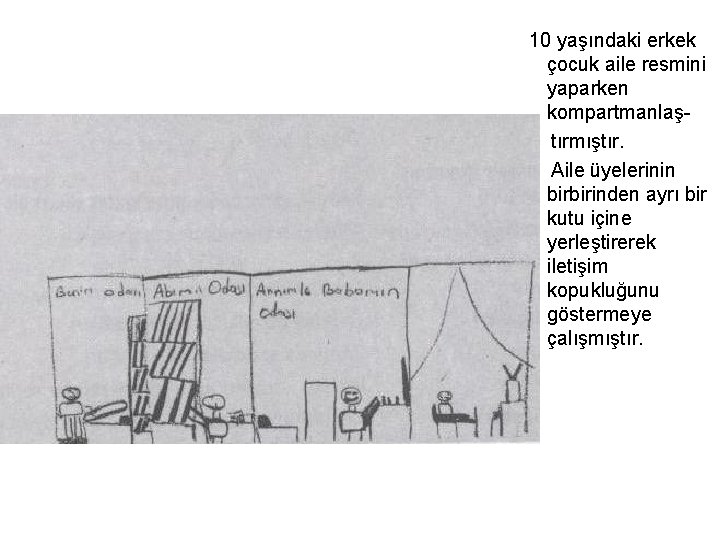 10 yaşındaki erkek
çocuk aile resmini
yaparken
kompartmanlaş-
tırmıştır.
Aile üyelerinin
birbirinden ayrı bir
kutu içine
yerleştirerek
iletişim
kopukluğunu
göstermeye
çalışmıştır.
Benim odam Abimin Odası Annemle Babamın
odası